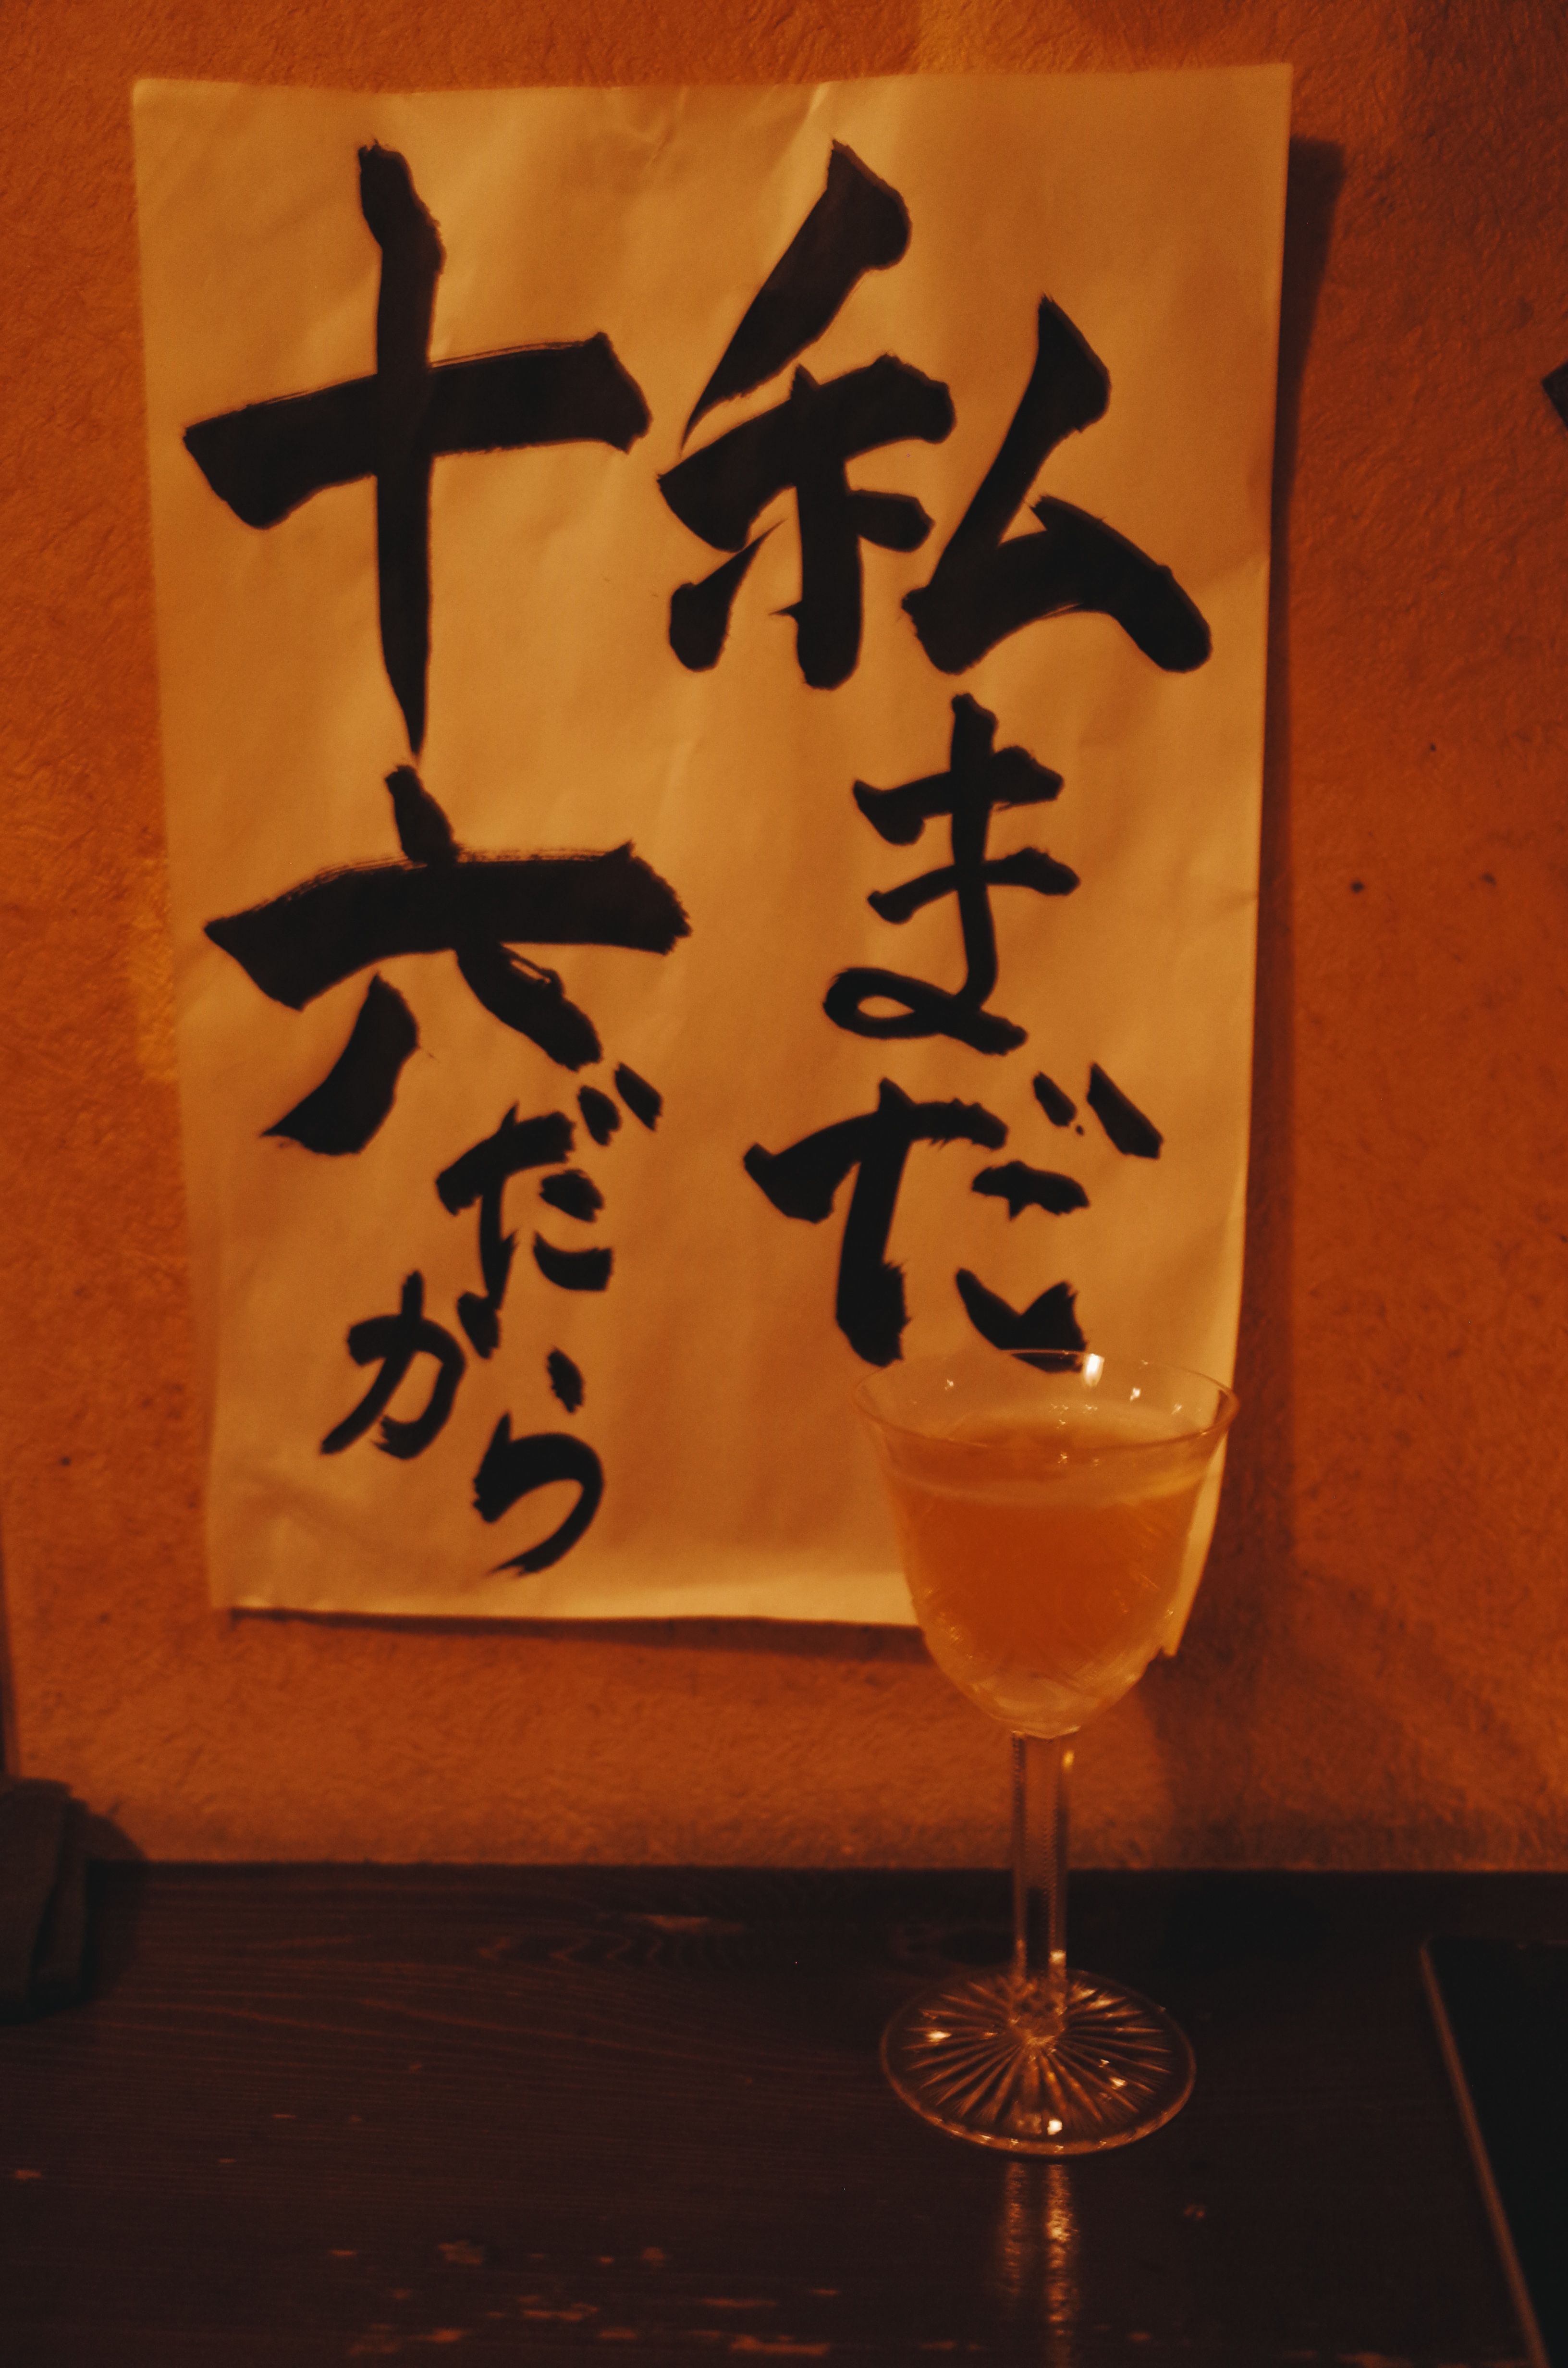 私まだ
十六だから